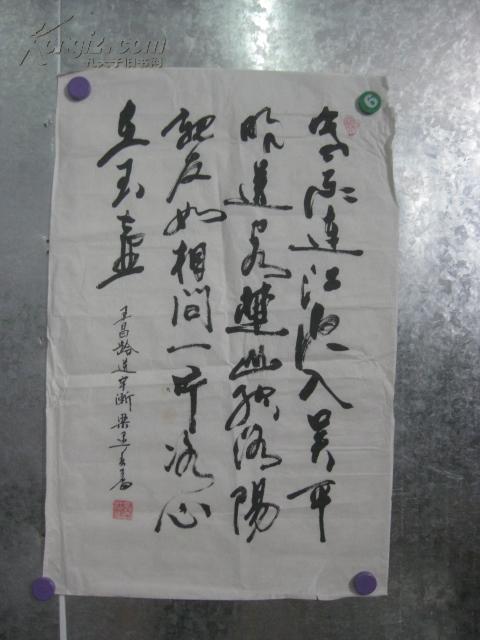 寒雨連江夜入吴平
明送客楚山孤洛陽
親友如相問一片冰心
在玉壺
王昌龄送辛渐 梁
kongfz.com
孔夫子旧书网